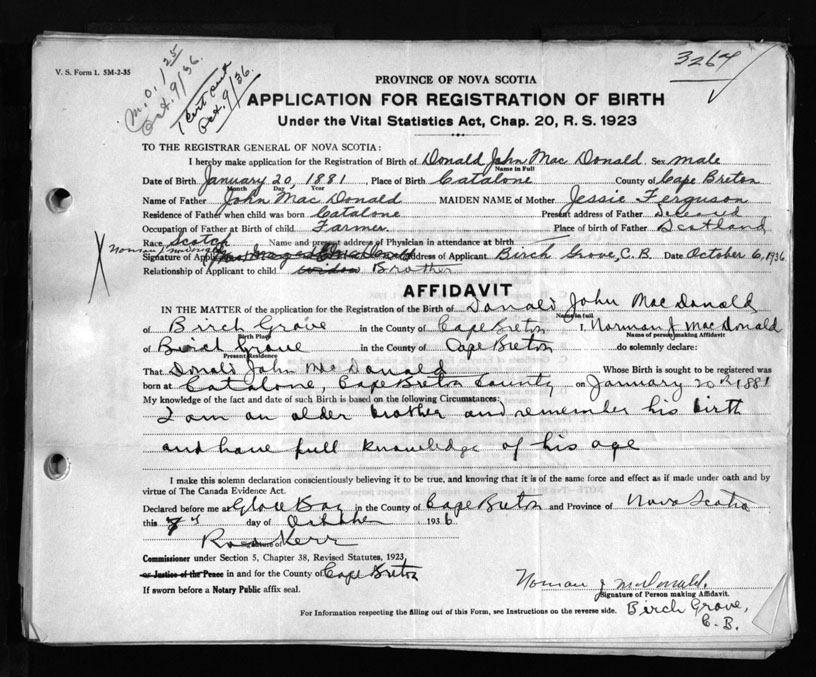 V. S. Form 1. 5M-2-35
M.O. 1 25
Oct. 9/36.
1 cert sent
Oct. 9/36
3264
PROVINCE OF NOVA SCOTIA
APPLICATION FOR REGISTRATION OF BIRTH
Under the Vital Statistics Act, Chap. 20, R. S. 1923
TO THE REGISTRAR GENERAL OF NOVA SCOTIA:
I hereby make application for the Registration of Birth of Donald John MacDonald Sex male
Name in Full
Date of Birth January 20, 1881, Place of Birth Catalone County of Cape Breton
Month Day, Year
Name of Father John MacDonald MAIDEN NAME of Mother Jessie Ferguson
Residence of Father when child was born Catalone Present address of Father Deceased
Occupation of Father at Birth of child Farmer. Place of birth of Father Scotland
Race Scotch Name and present address of Physician in attendance at birth
Norman J McDonald
Signature of Applicant Address of Applicant Birch Grove, C.B. Date October 6, 1936
Relationship of Applicant to child widow Brother
AFFIDAVIT
IN THE MATTER of the application for the Registration of the Birth of Donald John MacDonald
Name in full
of Birch Grove in the County of Cape Breton I, Norman J MacDonald
Birth Place Name of person making Affidavit
of Birch Grove in the County of Cape Breton do solemnly declare:
Present Residence
That Donald John McDonald Whose Birth is sought to be registered was
born at Catalone, Cape Breton County on January 20th 1881
My knowledge of the fact and date of such Birth is based on the following Circumstances:
I am an older brother and remember his birth
and have full knowledge of his age
I make this solemn declaration conscientiously believing it to be true, and knowing that it is of the same force and effect as if made under oath and by
virtue of The Canada Evidence Act.
Declared before me at Glace Bay in the County of Cape Breton and Province of Nova Scotia
this 7th day of October, 1936.
Kerr
Signature of
Commissioner under Section 5, Chapter 38, Revised Statutes, 1923,
or Justice of the Peace in and for the County of Cape Breton
If sworn before a Notary Public affix seal.
Norman J McDonald.
Signature of Person making Affidavit.
Birch Grove,
C. B.
For Information respecting the filling out of this Form, see Instructions on the reverse side.